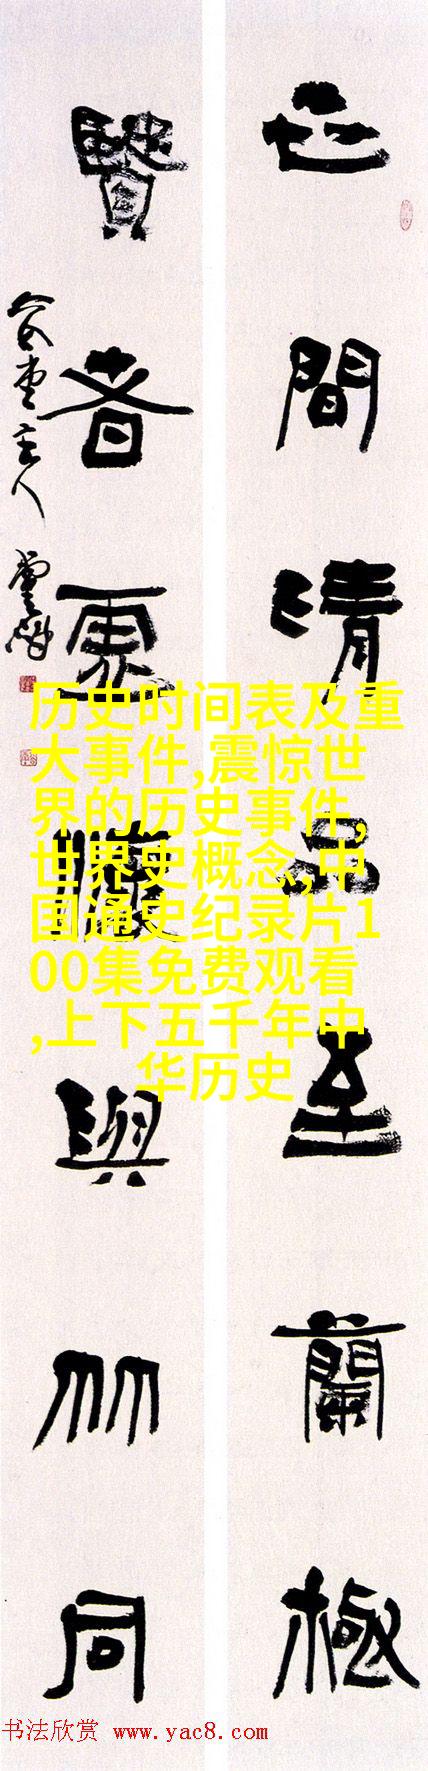 世間清品至蘭極
賢者虛懷與竹同
历史时间表及重
大事件,震惊世
界的历史事件,
世界史概念,中
国通史纪录片1
00集免费观看
,上下五千年中
华历史
书法欣赏 www.yac8.com